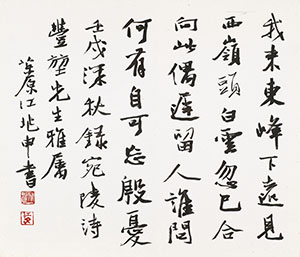 我来東峰下遠見
西嶺頭白雲忽已合
向此偶遲留人誰問
何有自可忘殷憂
壬戌深秋錄宛陵詩
豐塑先生雅屬
茮原江兆申書